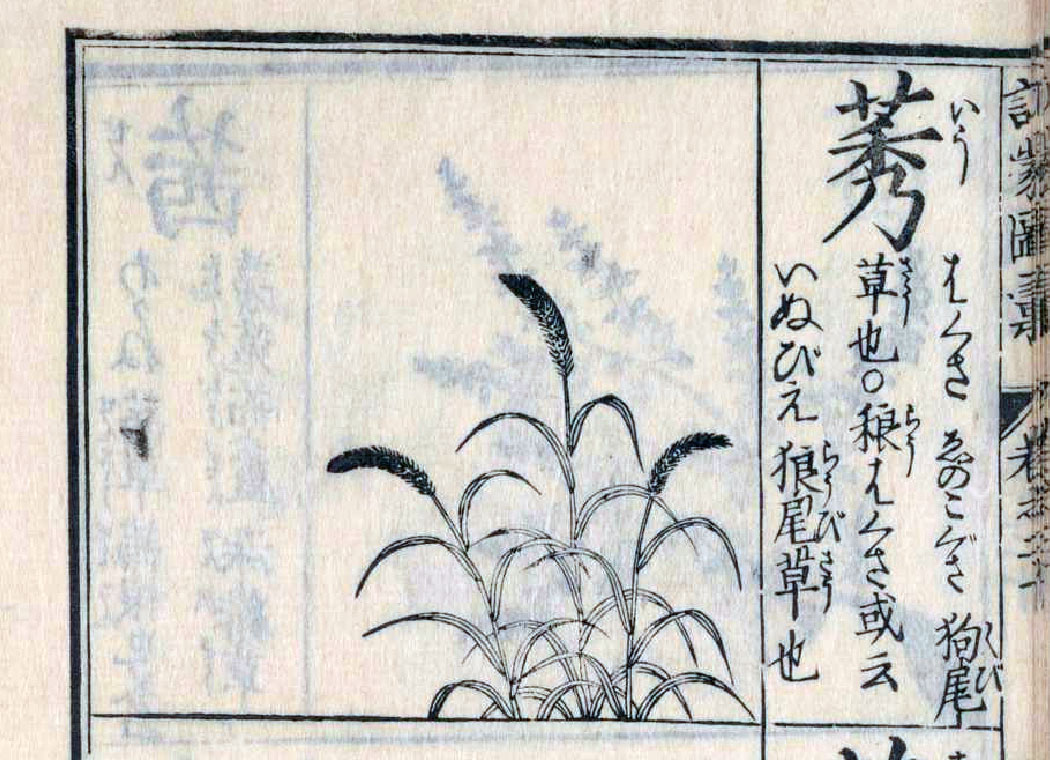 莠
いう
はくさ ゑのこぐさ 狗尾
くび
草也○稂はくさ或云
さう らう
いぬびえ 狼尾草也
らうびさう
訓蒙圖彙